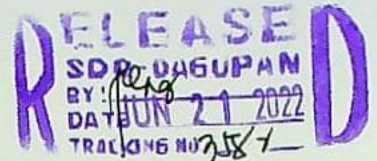 RELEASED
SDO DAGUPAN
BY:
DATE JUN 21 2022
TRACKING NO